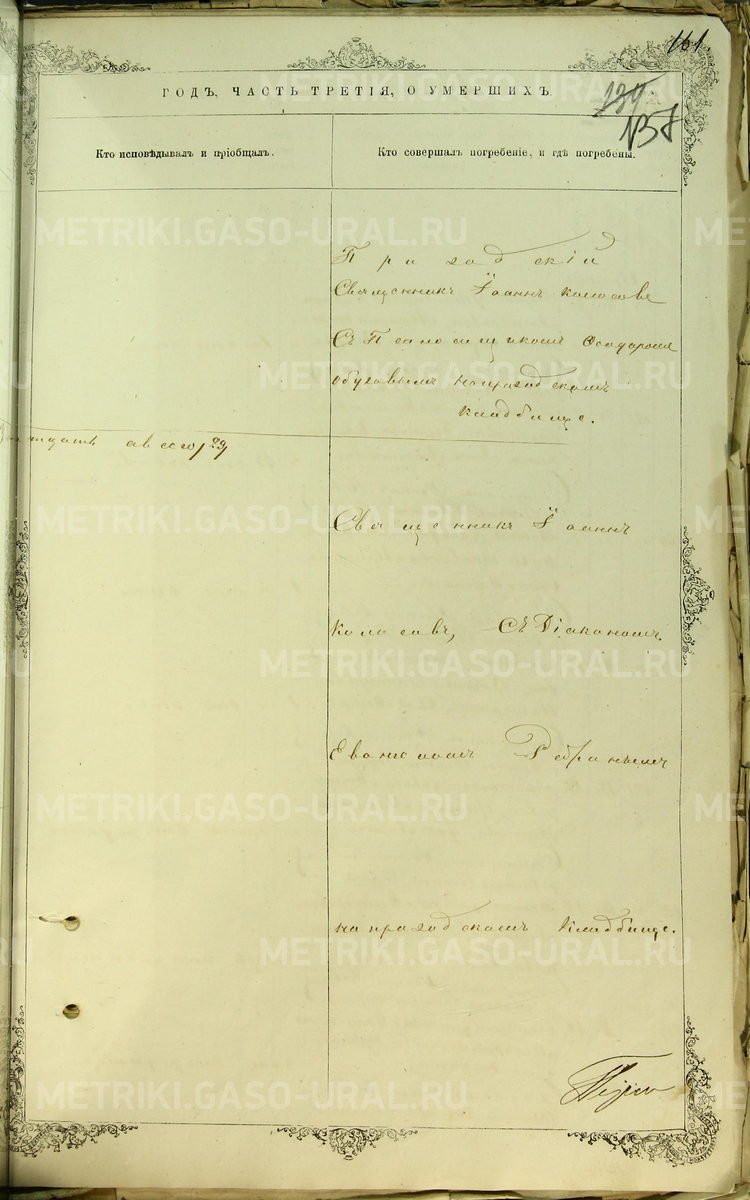 161
139
137
ГОДЪ, ЧАСТЬ ТРЕТІЯ, О УМЕРШИХЪ
Кто исповѣдывалъ и пріобщалъ.
Кто совершалъ погребеніе, и гдѣ погребены.
Приходскій
Священникъ Іоаннъ Колосовъ
Съ Псаломщикомъ Ѳеодоромъ
Обуховымъ на приходскомъ
кладбище.
29
Священникъ Іоаннъ
Колосовъ, Съ Діакономъ
на приходскомъ Кладбище.
METRIKI.GASO-URAL.RU